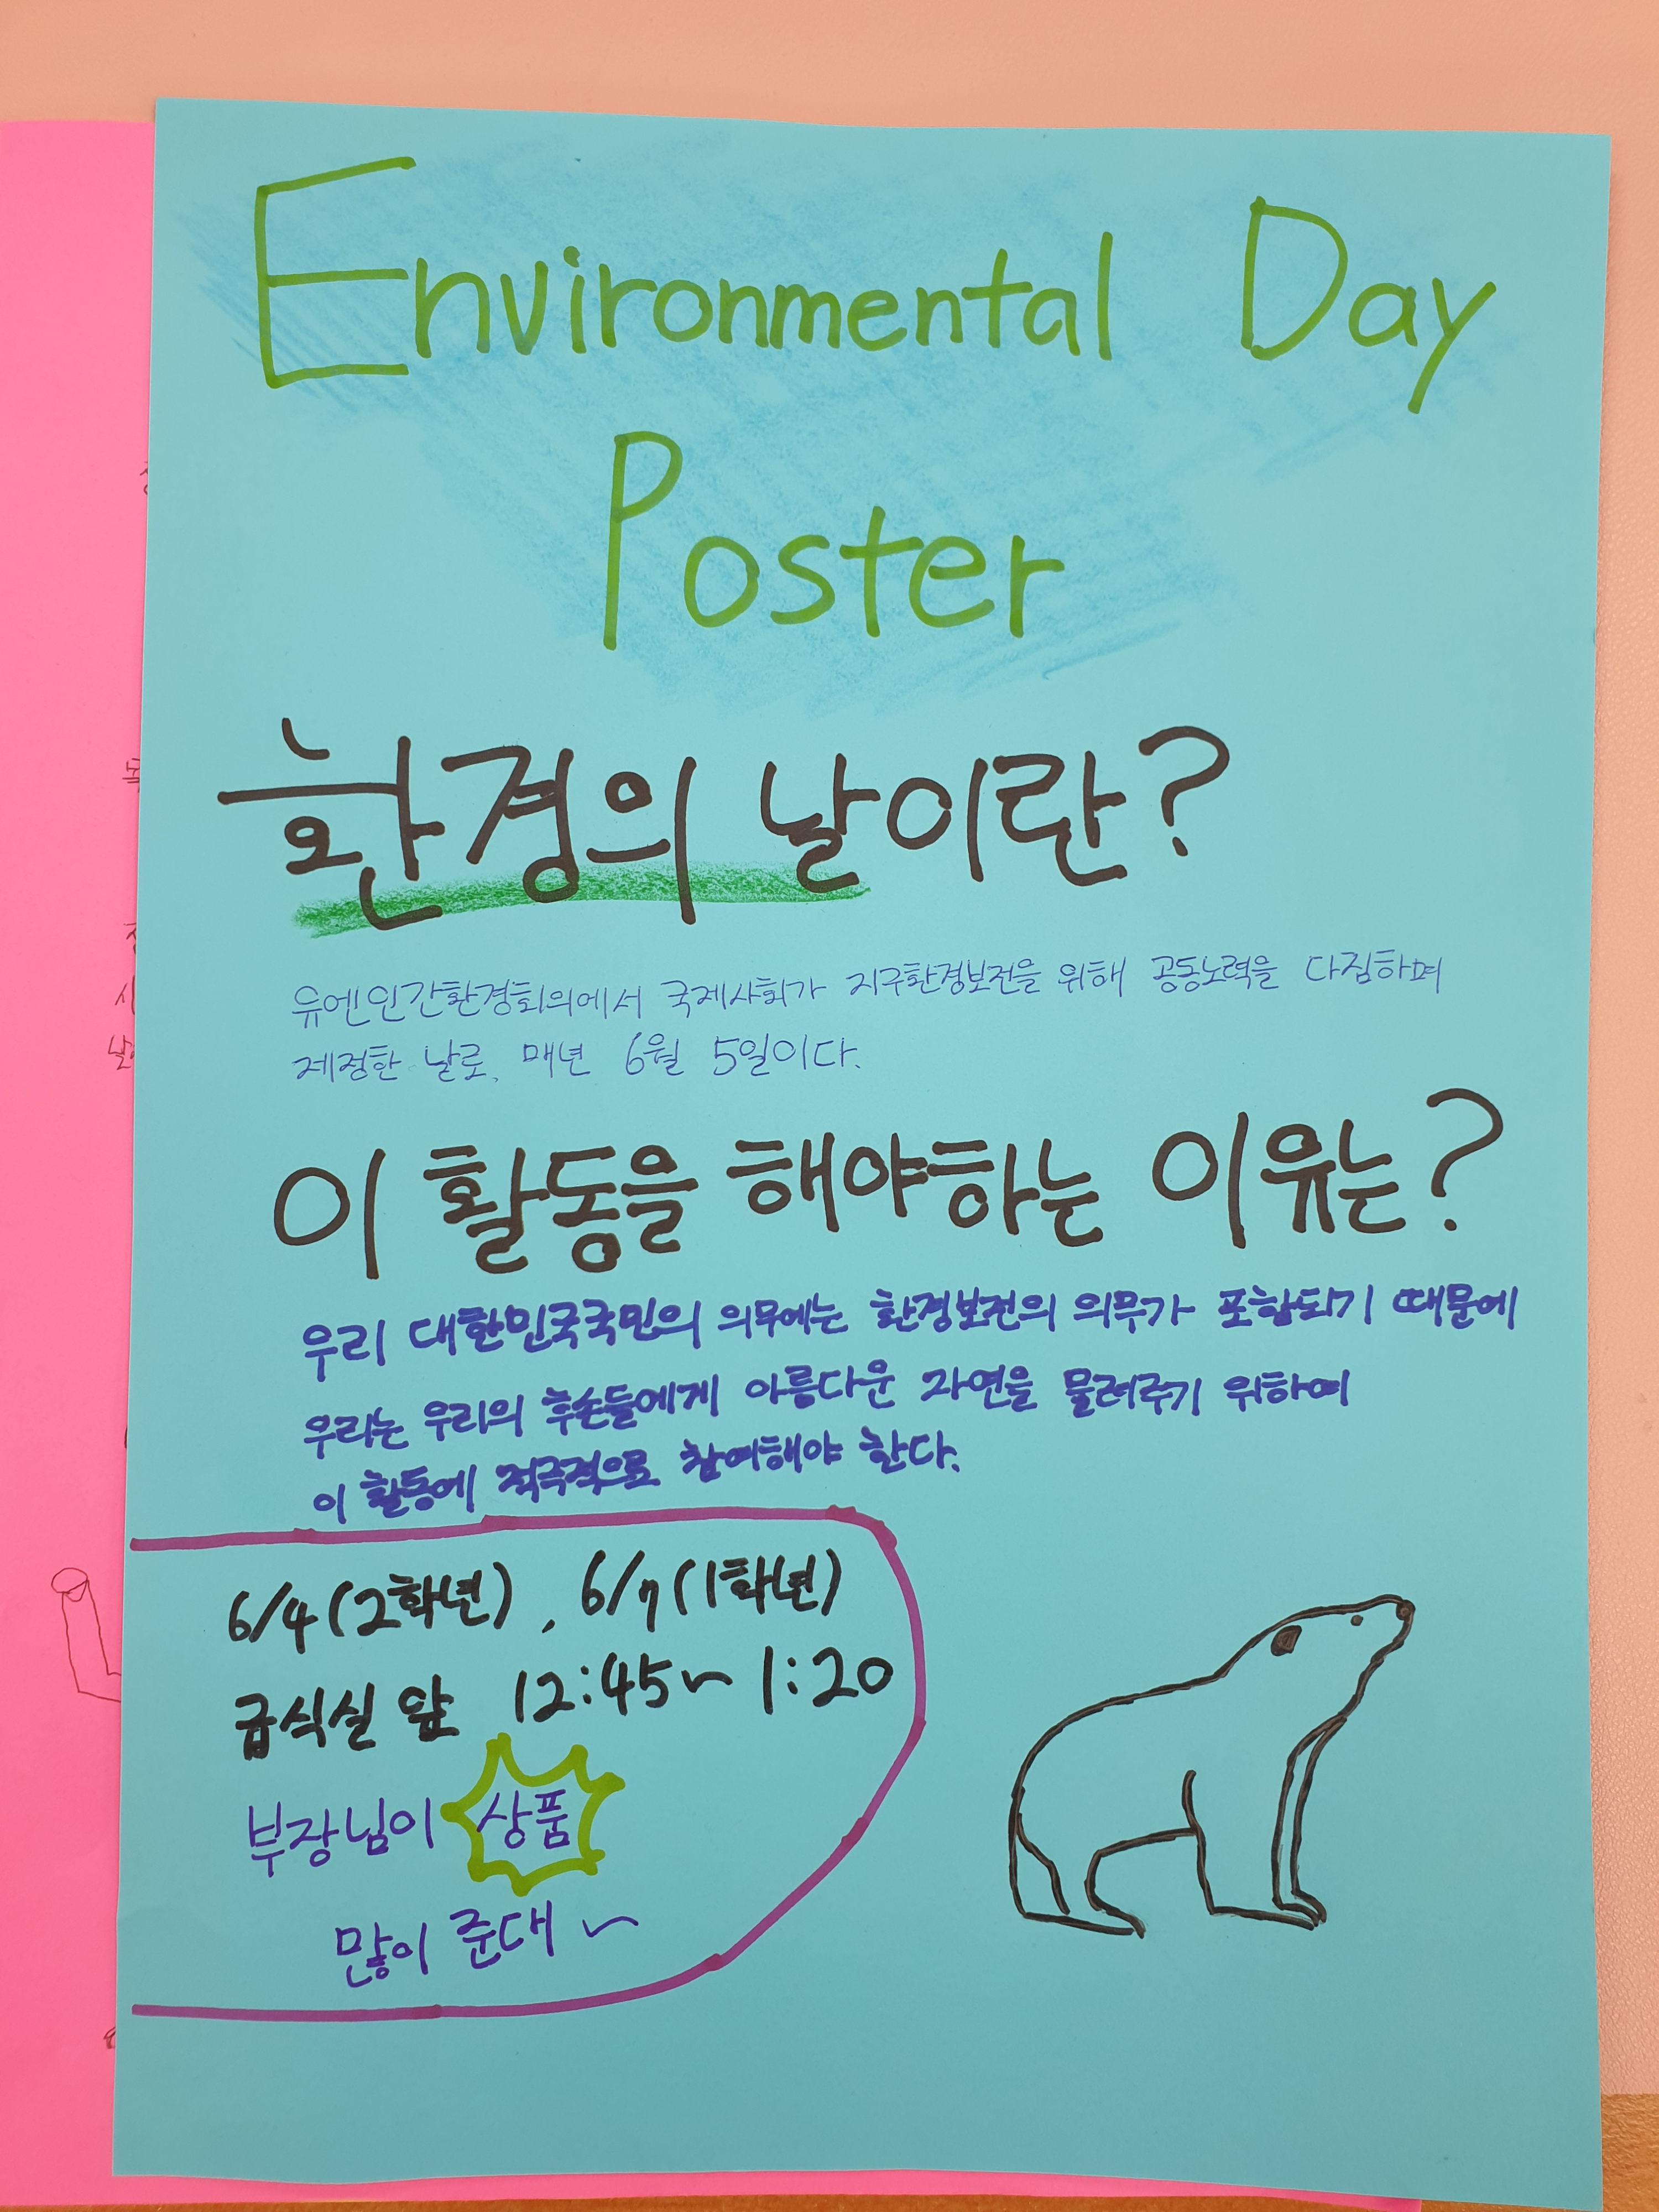 Environmental Day
Poster
환경의 날이란?
유엔인간환경회의에서 국제사회가 지구환경보전을 위해 공동노력을 다짐하며
제정한 날로, 매년 6월 5일이다.
이 활동을 해야하는 이유는?
우리 대한민국국민의 의무에는 환경보전의 의무가 포함되기 때문에
우리는 우리의 후손들에게 아름다운 자연을 물려주기 위하여
이 활동에 적극적으로 참여해야 한다.
6/4(2학년), 6/7(1학년)
급식실 앞 12:45~1:20
부장님이 상품
많이 준대~